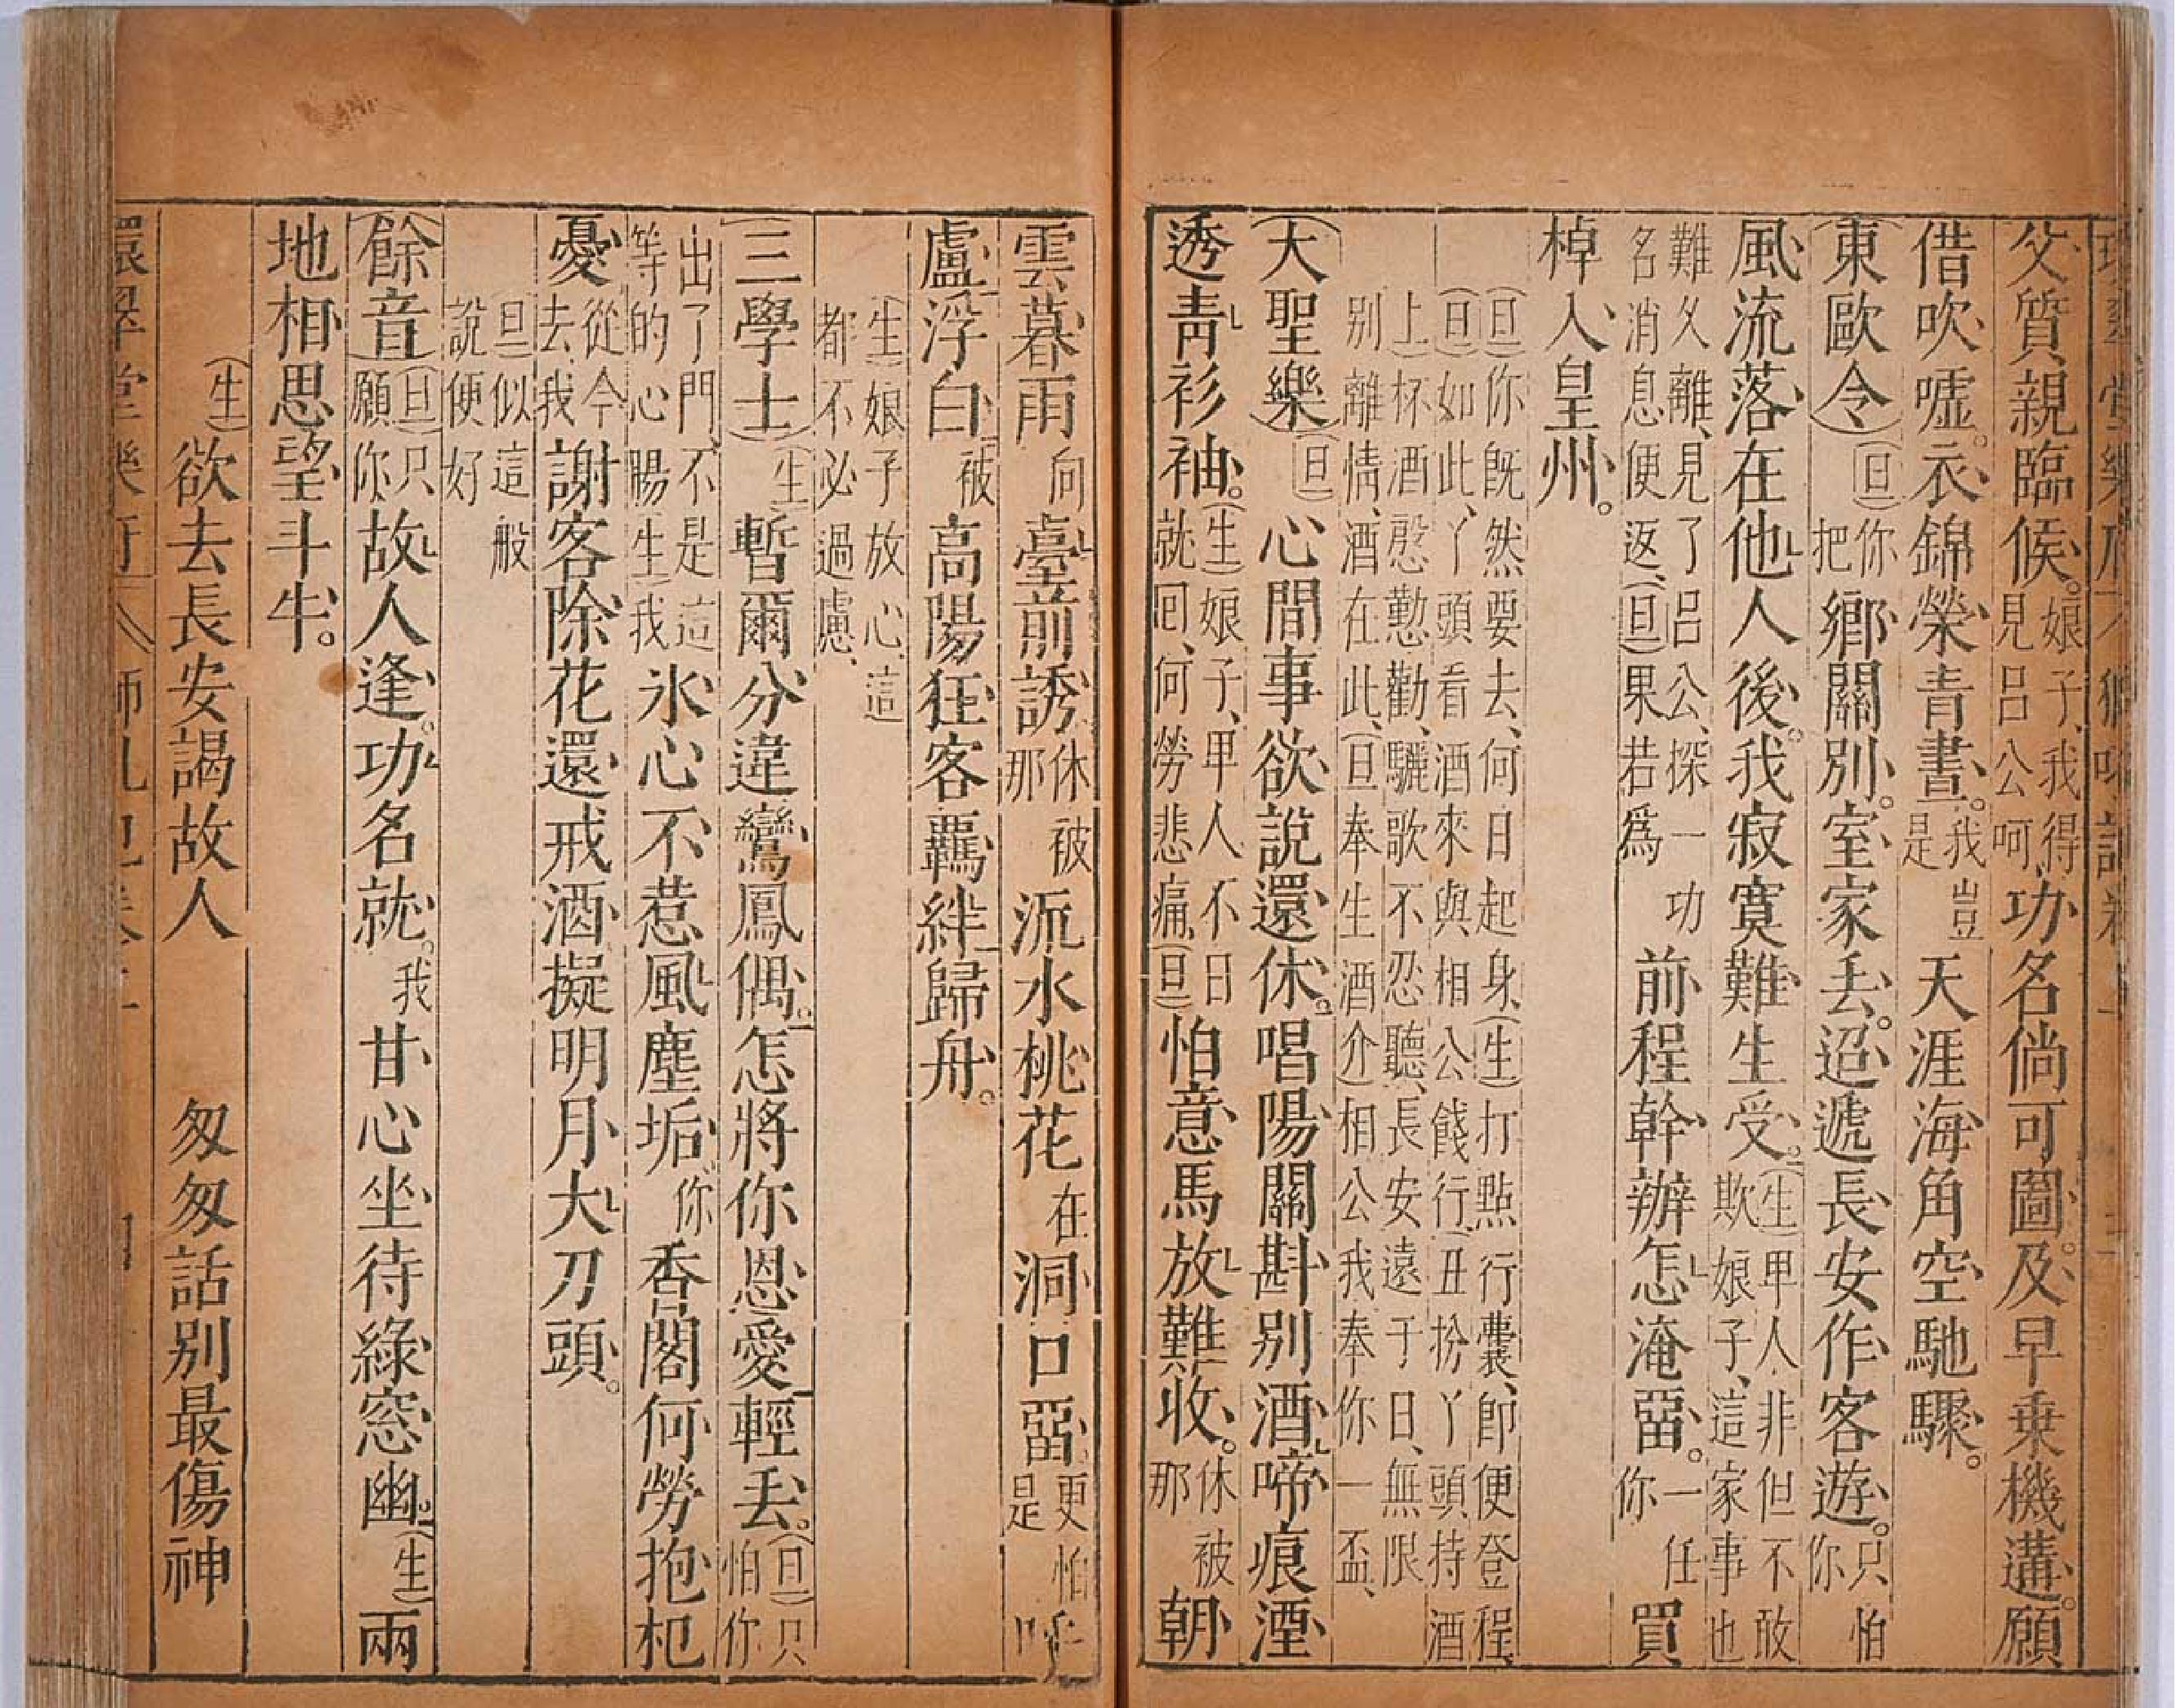 父質親臨候。娘子、我得見呂公呵功名倘可圖。及早乗機遘。願
借吹噓。衣錦榮青晝。我豈是天涯海角空馳驟。
(東歐令)(旦)你把鄉關別。室家丢。迢遞長安作客遊。只怕你
風流落在他人後。我寂寞難生受。(生)甲人非但不敢欺娘子、這家事也
難久離、見了呂公、探一功名消息便返、(旦)果若爲前程幹辦怎淹畱。一任你買
棹入皇州。
(旦)你既然要去、何日起身、(生)打點行囊、即便登程、(旦)如此、丫頭看酒來與相公餞行(丑扮丫頭持酒
上)杯酒慇懃勸、驪歌不忍聽、長安遠于日、無限别離情、酒在此、(旦奉生酒介)相公我奉你一盃、
(大聖樂)(旦)心間事欲說還休。唱陽關斟别酒啼痕湮
透青衫袖。(生)娘子、甲人不日就回、何勞悲痛、(旦)怕意馬放難收。休被那朝
雲暮雨向臺前誘休被那派水桃花在洞口畱。更怕是呼
盧浮白被高陽狂客羈絆歸舟。
(生)娘子放心、這都不必過慮、
(三學士)(生)暫爾分違鸞鳳偶。怎將你恩愛輕丢。(旦)只怕你
出了門、不是這等的心腸(生)我氷心不惹風塵垢。你香閣何勞抱杞
憂從今去、我謝客除花還戒酒。擬明月大刀頭。
(旦)似這般說便好
(餘音)(旦)只願你故人逢。功名就。我甘心坐待綠窓幽。(生)兩
地相思望斗牛。
(生)欲去長安謁故人 匆匆話别最傷神